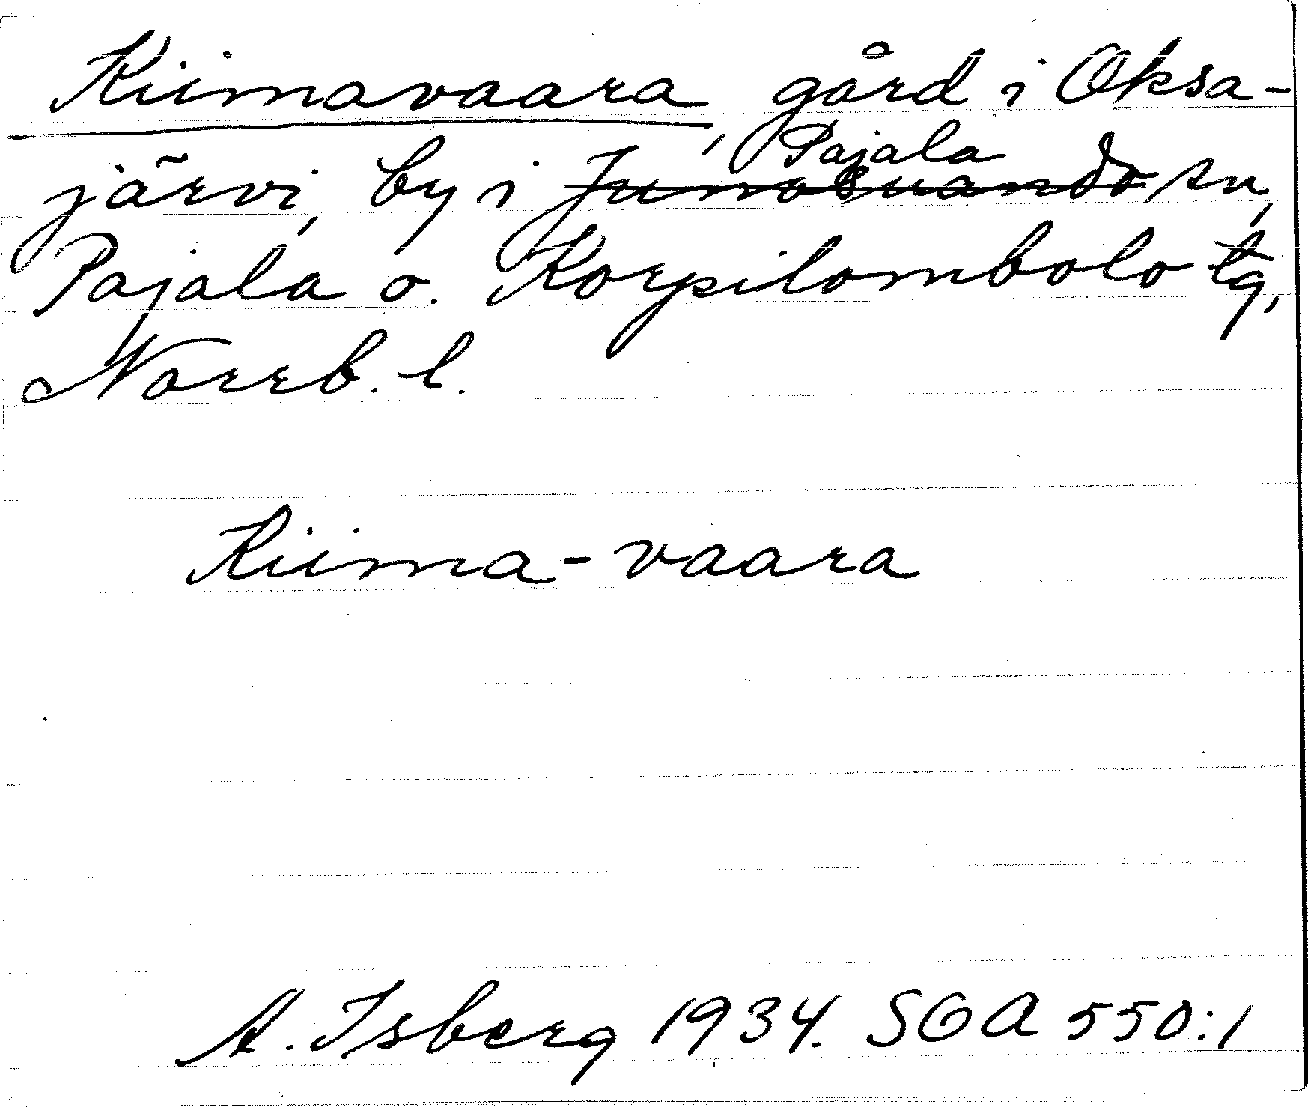 Kiimavaara, gård i Oksa-
järvi, by i Junosuando Pajala sn,
Pajala o. Korpilombolo tg,
Norrb. l.
Kiima-vaara
A. Isberg 1934. SOA 550:1